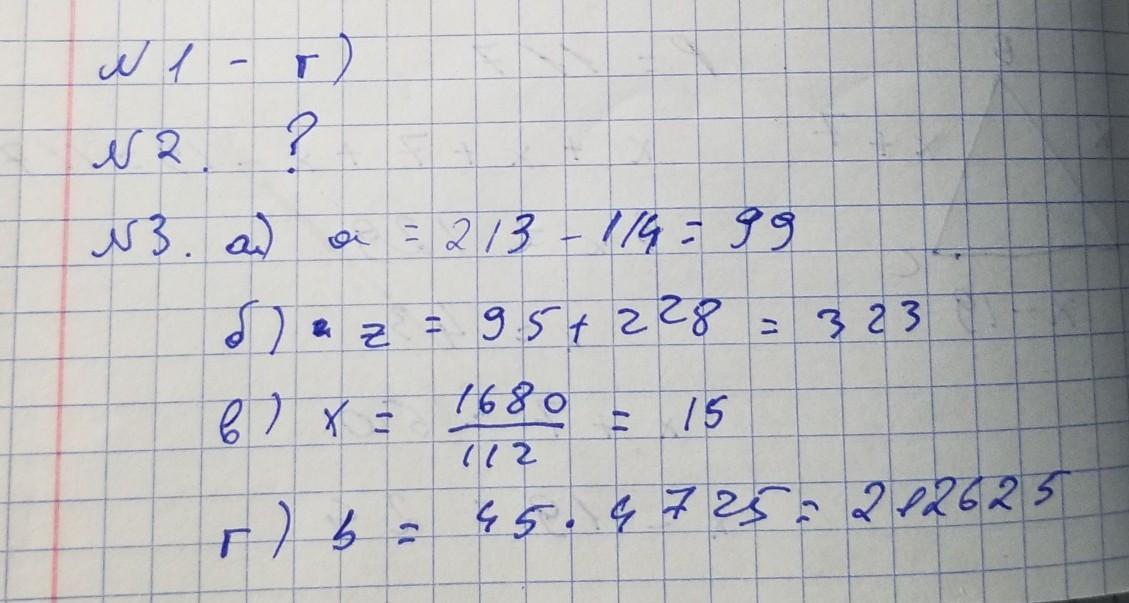 №1 - г)
№2. ?
№3. а) a = 213 - 114 = 99
б) z = 95 + 228 = 323
в) x = 1680/112 = 15
г) b = 45 · 4725 = 212625